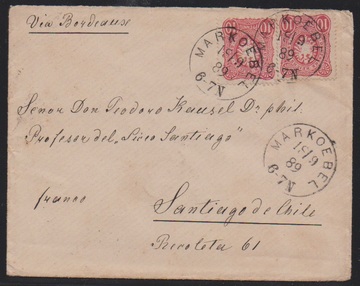 Via Bordeaux
10 10
MARKOEBEL
18/9
89
6-7N
MARKOEBEL
18/9
89
6-7N
Senor Don Teodoro Kausel Dr. phil.
Profesor del "Liceo Santiago"
MARKOEBEL
18/9
89
6-7N
franco
Santiago de Chile
Recoleta 61